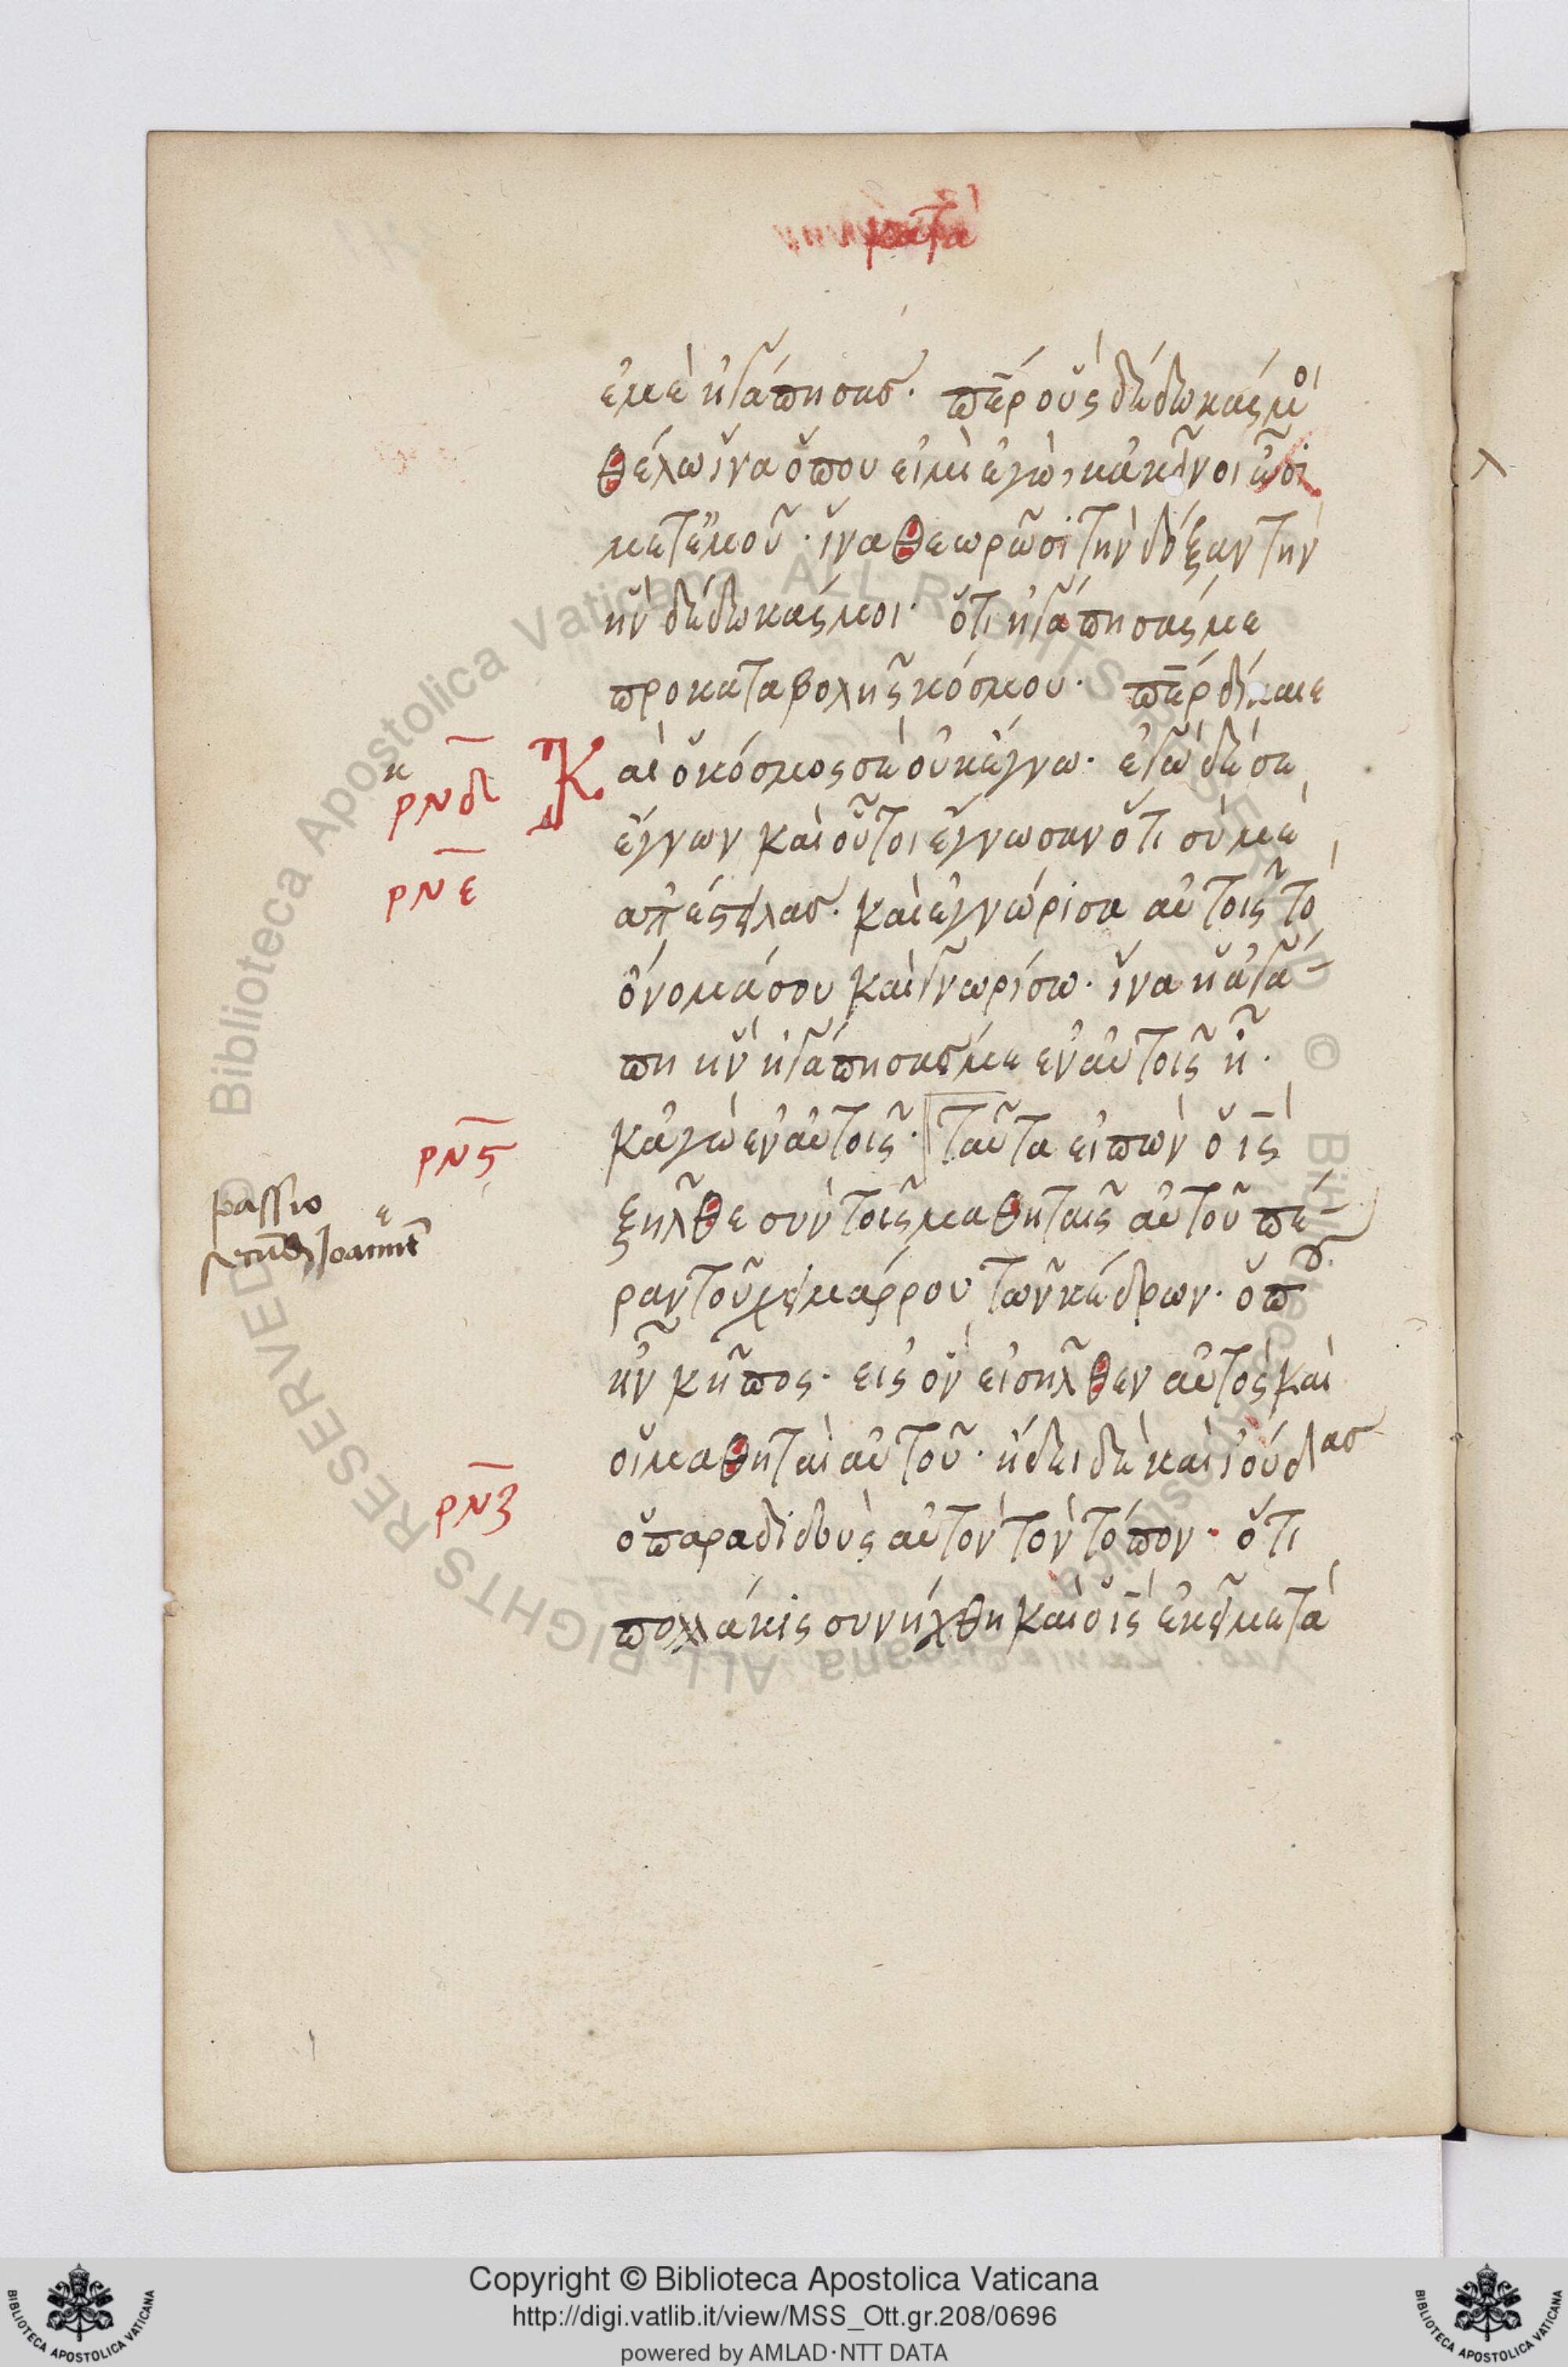 κατὰ
ἐμὲ ἠγάπησας. πῆρ οὓς δέδωκάς μοι
θέλω ἵνα ὅπου εἰμὶ ἐγὼ, κἀκεῖνοι ὦσι
μετ ἐμοῦ. ἵνα θεωρῶσι τὴν δόξαν τὴν
ἣν δέδωκάς μοι. ὅτι ἠγάπησάς με
προ καταβολῆς κόσμου. πῆρ δίκαιε
κ
ρνδ
Καὶ ὁ κόσμος σὲ οὐκ ἔγνω. ἐγὼ δέ σε
ἔγνων καὶ οὗτοι ἔγνωσαν ὅτι σύ με
ρνε
ἀπέστειλας. καὶ ἐγνώρισα αὐτοῖς τὸ
ὄνομά σου καὶ γνωρίσω. ἵνα ἡ ἀγά-
πη ἣν ἠγάπησάς με ἐν αὐτοῖς ᾖ.
ρνς
κἀγὼ ἐν αὐτοῖς. ταῦτα εἰπὼν ὁ ις
passio
ε
Joannē
ξῆλθε σὺν τοῖς μαθηταῖς αὐτοῦ πέ-
ραν τοῦ χειμάρρου τῶν κέδρων. ὅπου
ἦν κῆπος. εἰς ὃν εἰσῆλθεν αὐτὸς καὶ
οἱ μαθηταὶ αὐτοῦ. ἤδει δὲ καὶ ἰούδας
ρνζ
ὁ παραδιδοὺς αὐτὸν τὸν τόπον. ὅτι
πολλάκις συνήχθη καὶ ὁ ις ἐκεῖ μετὰ
Copyright © Biblioteca Apostolica Vaticana
http://digi.vatlib.it/view/MSS_Ott.gr.208/0696
powered by AMLAD·NTT DATA